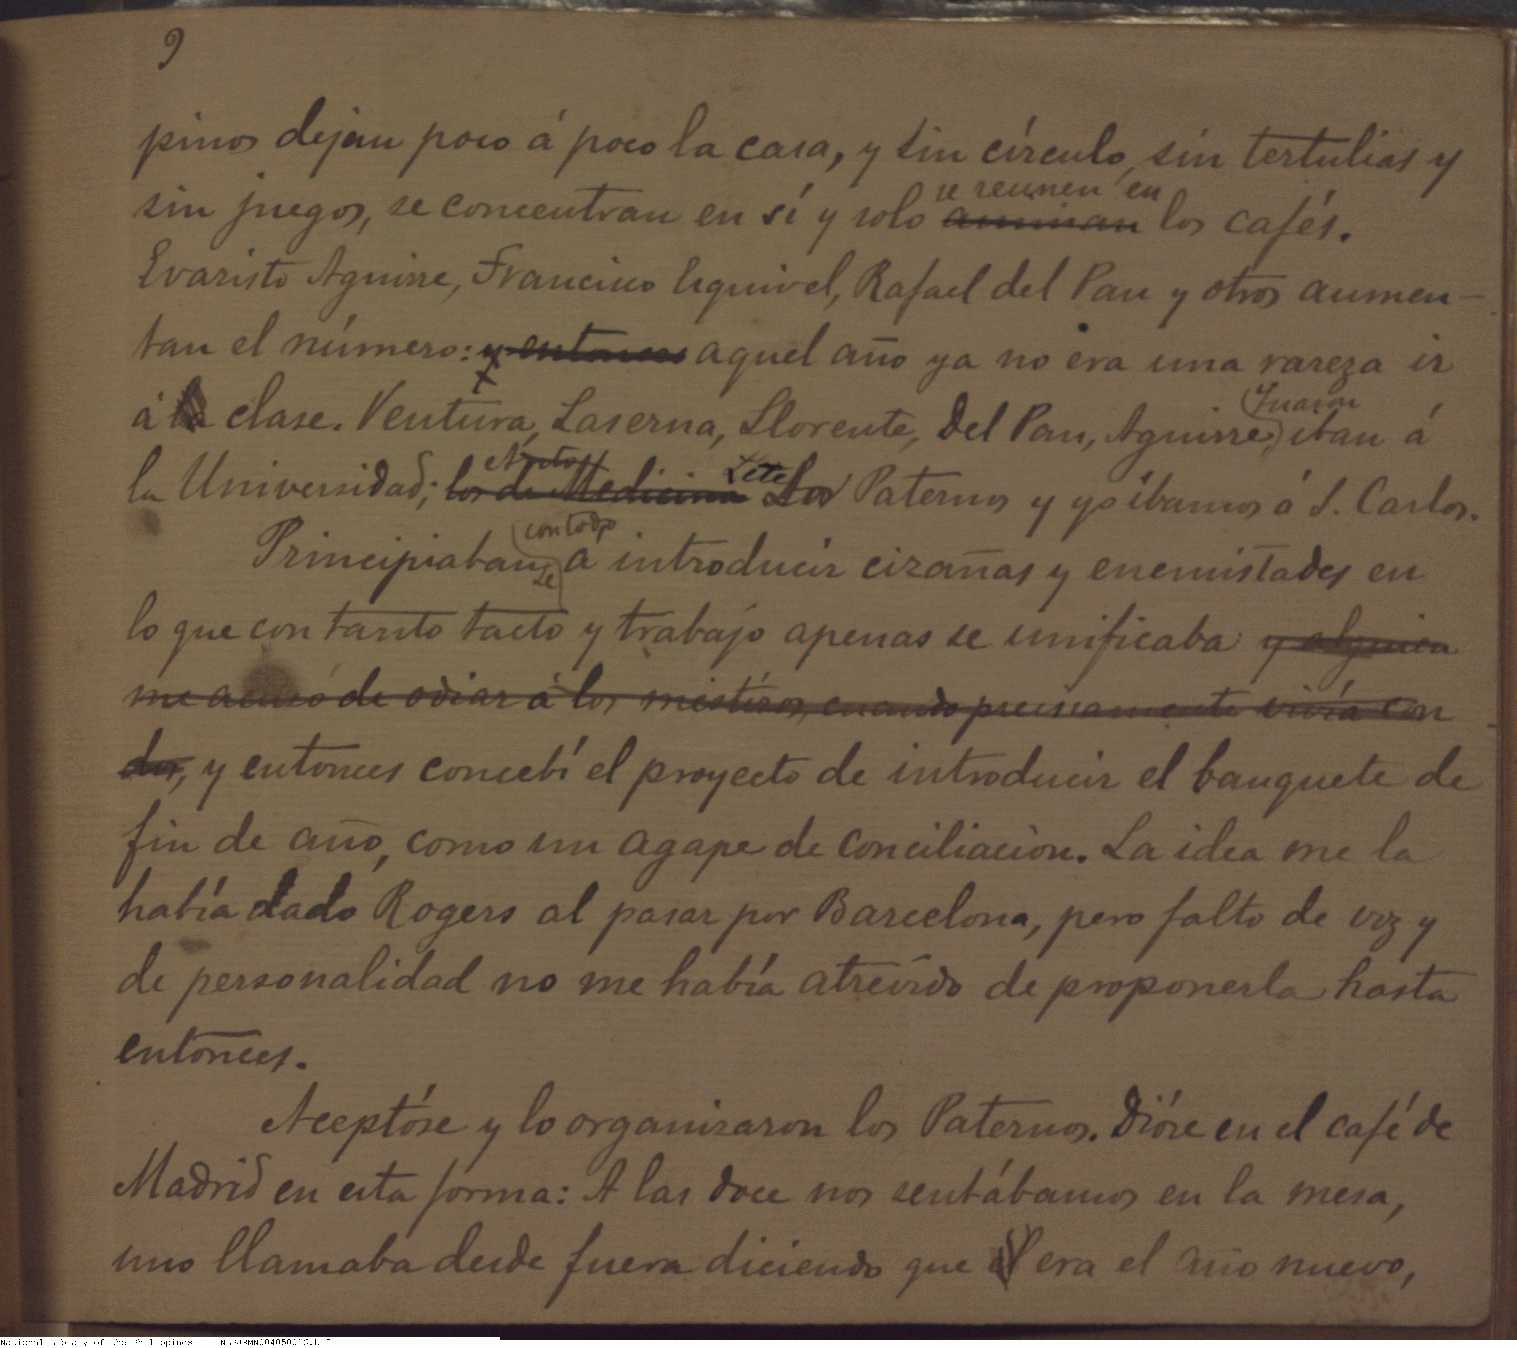 9
pinos dejan poco á poco la casa, y sin círculo, sin tertulias y
se reunen en
sin juegos, se concentran en sí y solo animan los cafés.
Evaristo Aguirre, Francisco Esquivel, Rafael del Pan y otros aumen-
tan el número: y entonces aquel año ya no era una rareza ir
á la clase. Ventura, Laserna, Llorente, Del Pan, Aguirre, iban á
la Universidad; los de Medicina Lete Los Paternos y yo íbamos á S. Carlos.
con todo
Principiaban se a introducir cizañas y enemistades en
lo que con tanto tacto y trabajo apenas se unificaba y alguien
me acusó de odiar á los mestizos, cuando precisamente vivía con
dos, y entonces concebí el proyecto de introducir el banquete de
fin de año, como un agape de conciliacion. La idea me la
había dado Rogers al pasar por Barcelona, pero falto de voz y
de personalidad no me había atrevido de proponerla hasta
entonces.
Aceptóse y lo organizaron los Paternos. Dióse en el café de
Madrid en esta forma: A las doce nos sentábamos en la mesa,
uno llamaba desde fuera diciendo que era el año nuevo,
National Library of the Philippines